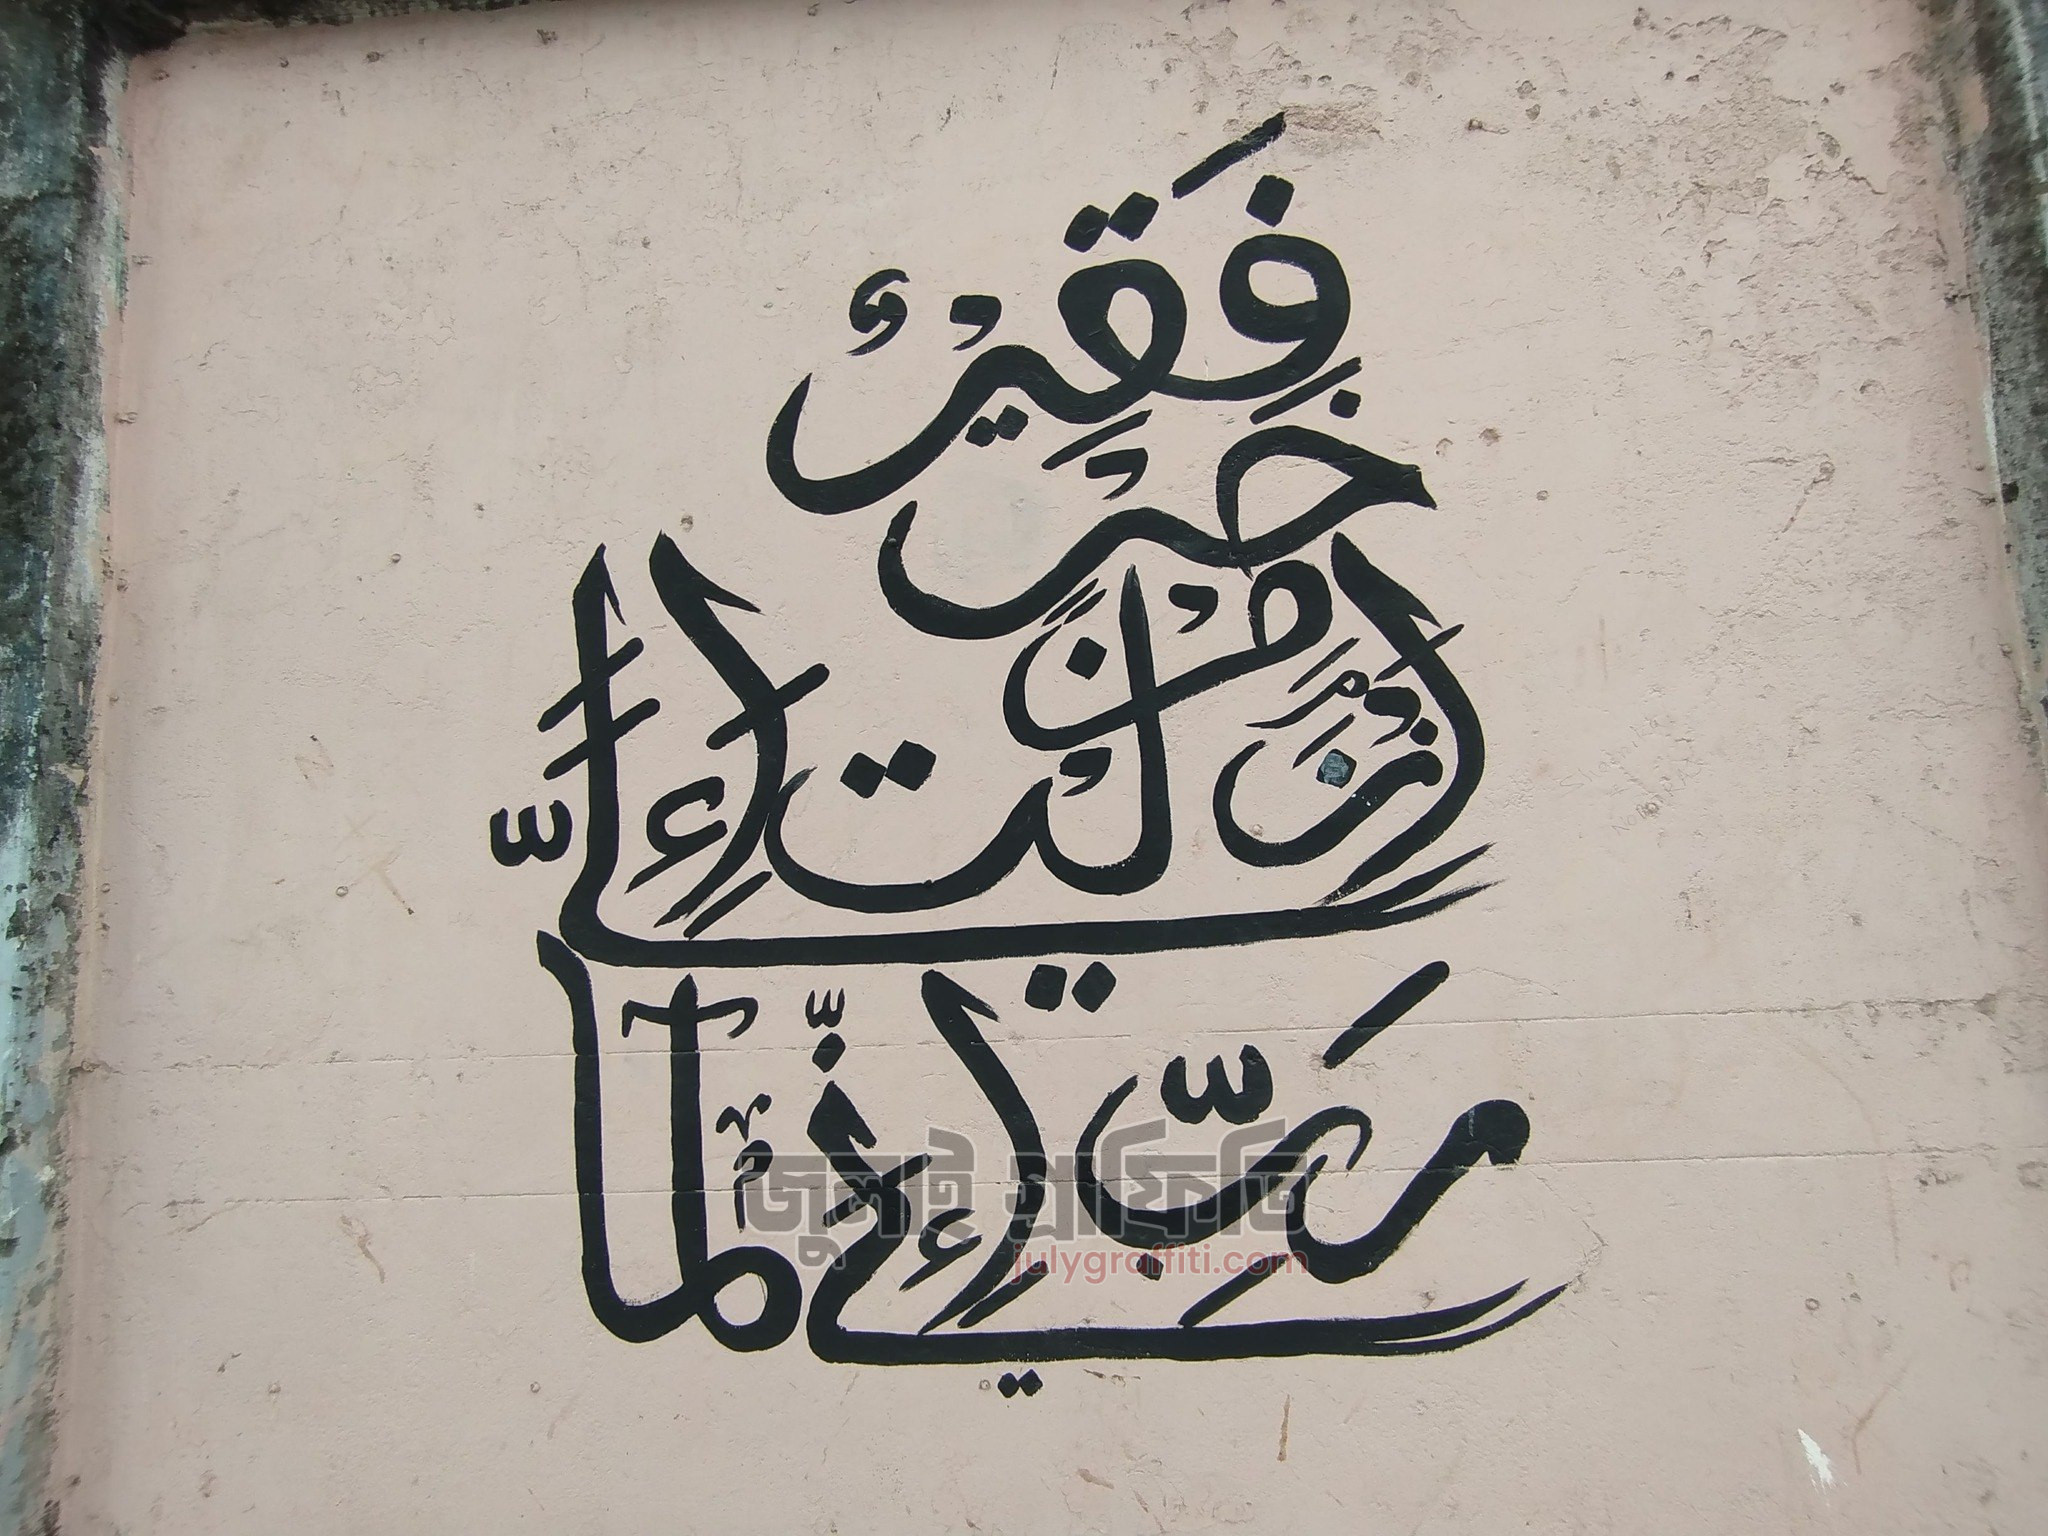 رَبِّ إِنِّي لِمَا
أَنْزَلْتَ إِلَيَّ
مِنْ خَيْرٍ
فَقِيرٌ
জুলাই গ্রাফিতি
julygraffiti.com